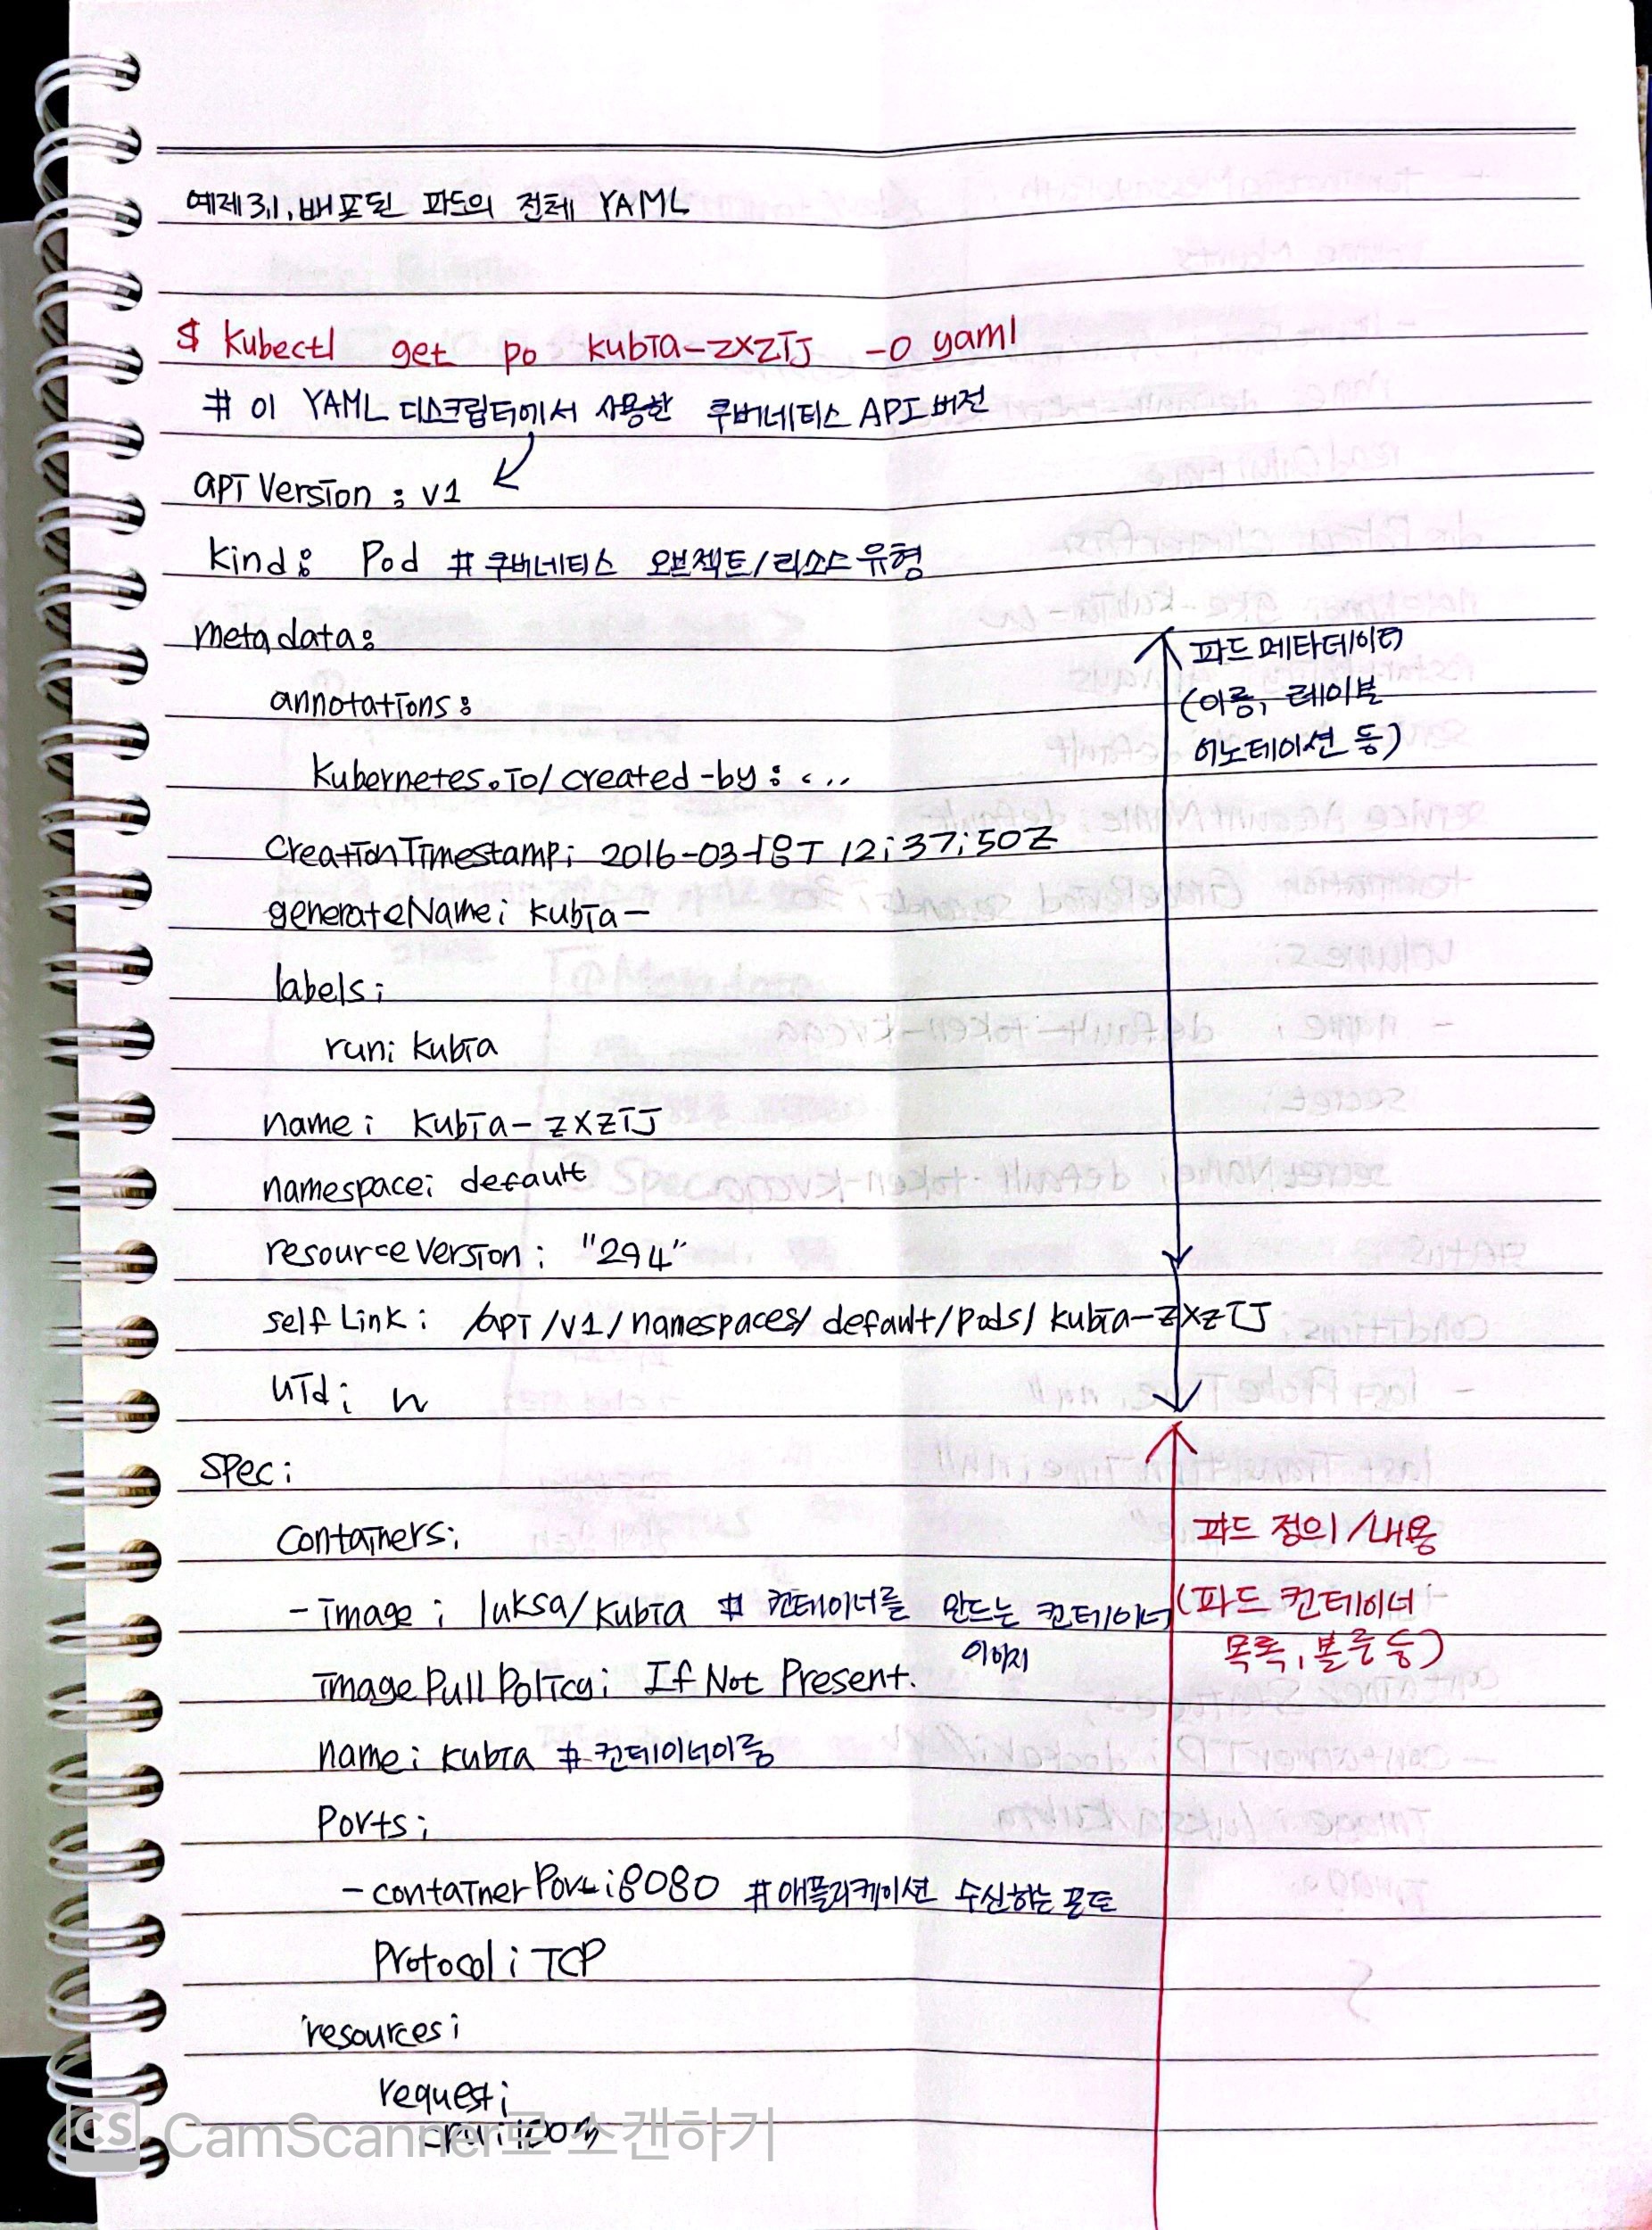 예제 3.1. 배포된 파드의 전체 YAML
$ kubectl get po kubia-zxzij -o yaml
# 이 YAML 디스크립터에서 사용한 쿠버네티스 API 버전
apiVersion : v1
kind : Pod # 쿠버네티스 오브젝트/리소스 유형
metadata :
파드 메타데이터
annotations :
(이름, 레이블
어노테이션 등)
kubernetes.io/created-by : ...
creationTimestamp : 2016-03-18T 12:37:50Z
generateName : kubia-
labels :
run : kubia
name : kubia-zxzij
namespace : default
resourceVersion : "294"
selfLink : /api/v1/namespaces/default/pods/kubia-zxzij
uid :
spec :
containers :
파드 정의/내용
- image : luksa/kubia # 컨테이너를 만드는 컨테이너
이미지
(파드 컨테이너
목록, 볼륨 등)
imagePullPolicy : If Not Present.
name : kubia # 컨테이너이름
ports :
- containerPort : 8080 # 애플리케이션 수신하는 포트
Protocol : TCP
resources :
request :
cpu : 100m
CS CamScanner로 스캔하기